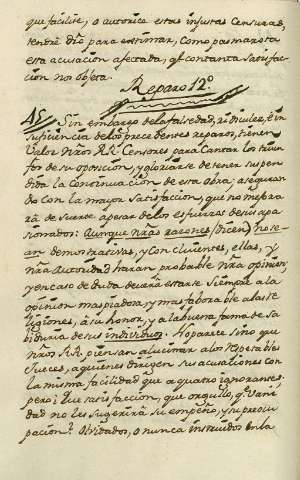 que facilite, o autorice estas injustas Censuras,
tendré dro para estimar, como pasmarota
esta acusacion afectada, qe con tanta satisfac-
cion nos objeta.
Reparo 12º
45 Sin embargo de la falsedad, ridiculez, è in-
suficiencia de los precedentes reparos, tienen
valor ntros RR. Censores para cantar los triun-
fos de su oposicion, y gloriarse de tener suspen-
dida la Continuacion de esta obra; aseguran-
do con la mayor satisfaccion, que no mejora-
rá de suerte apesar de los esfuerzos de sus apa-
sionados: Aunque ntras razones (dicen) no se-
an demostrativas, y Concluientes, ellas, y
ntra Autoridad haran probable ntra opinion,
y en caso de duda deverá estarse siempre a la
opinion mas piadosa, y mas faborable a las Re-
ligiones, à su honor, y a la buena fama de Sa-
biduria de sus individuos. No parece sino que
ntros RR. piensan alucinar a los respetables
Jueces, a quienes dirigen sus acusaciones con
la misma facilidad que a quatro ignorantes,
pero; Que satisfaccion, que orgullo, qe Vani-
dad no les sugerirá su empeño, y su preocu-
pacion? Olvidados, o nunca instruidos en la